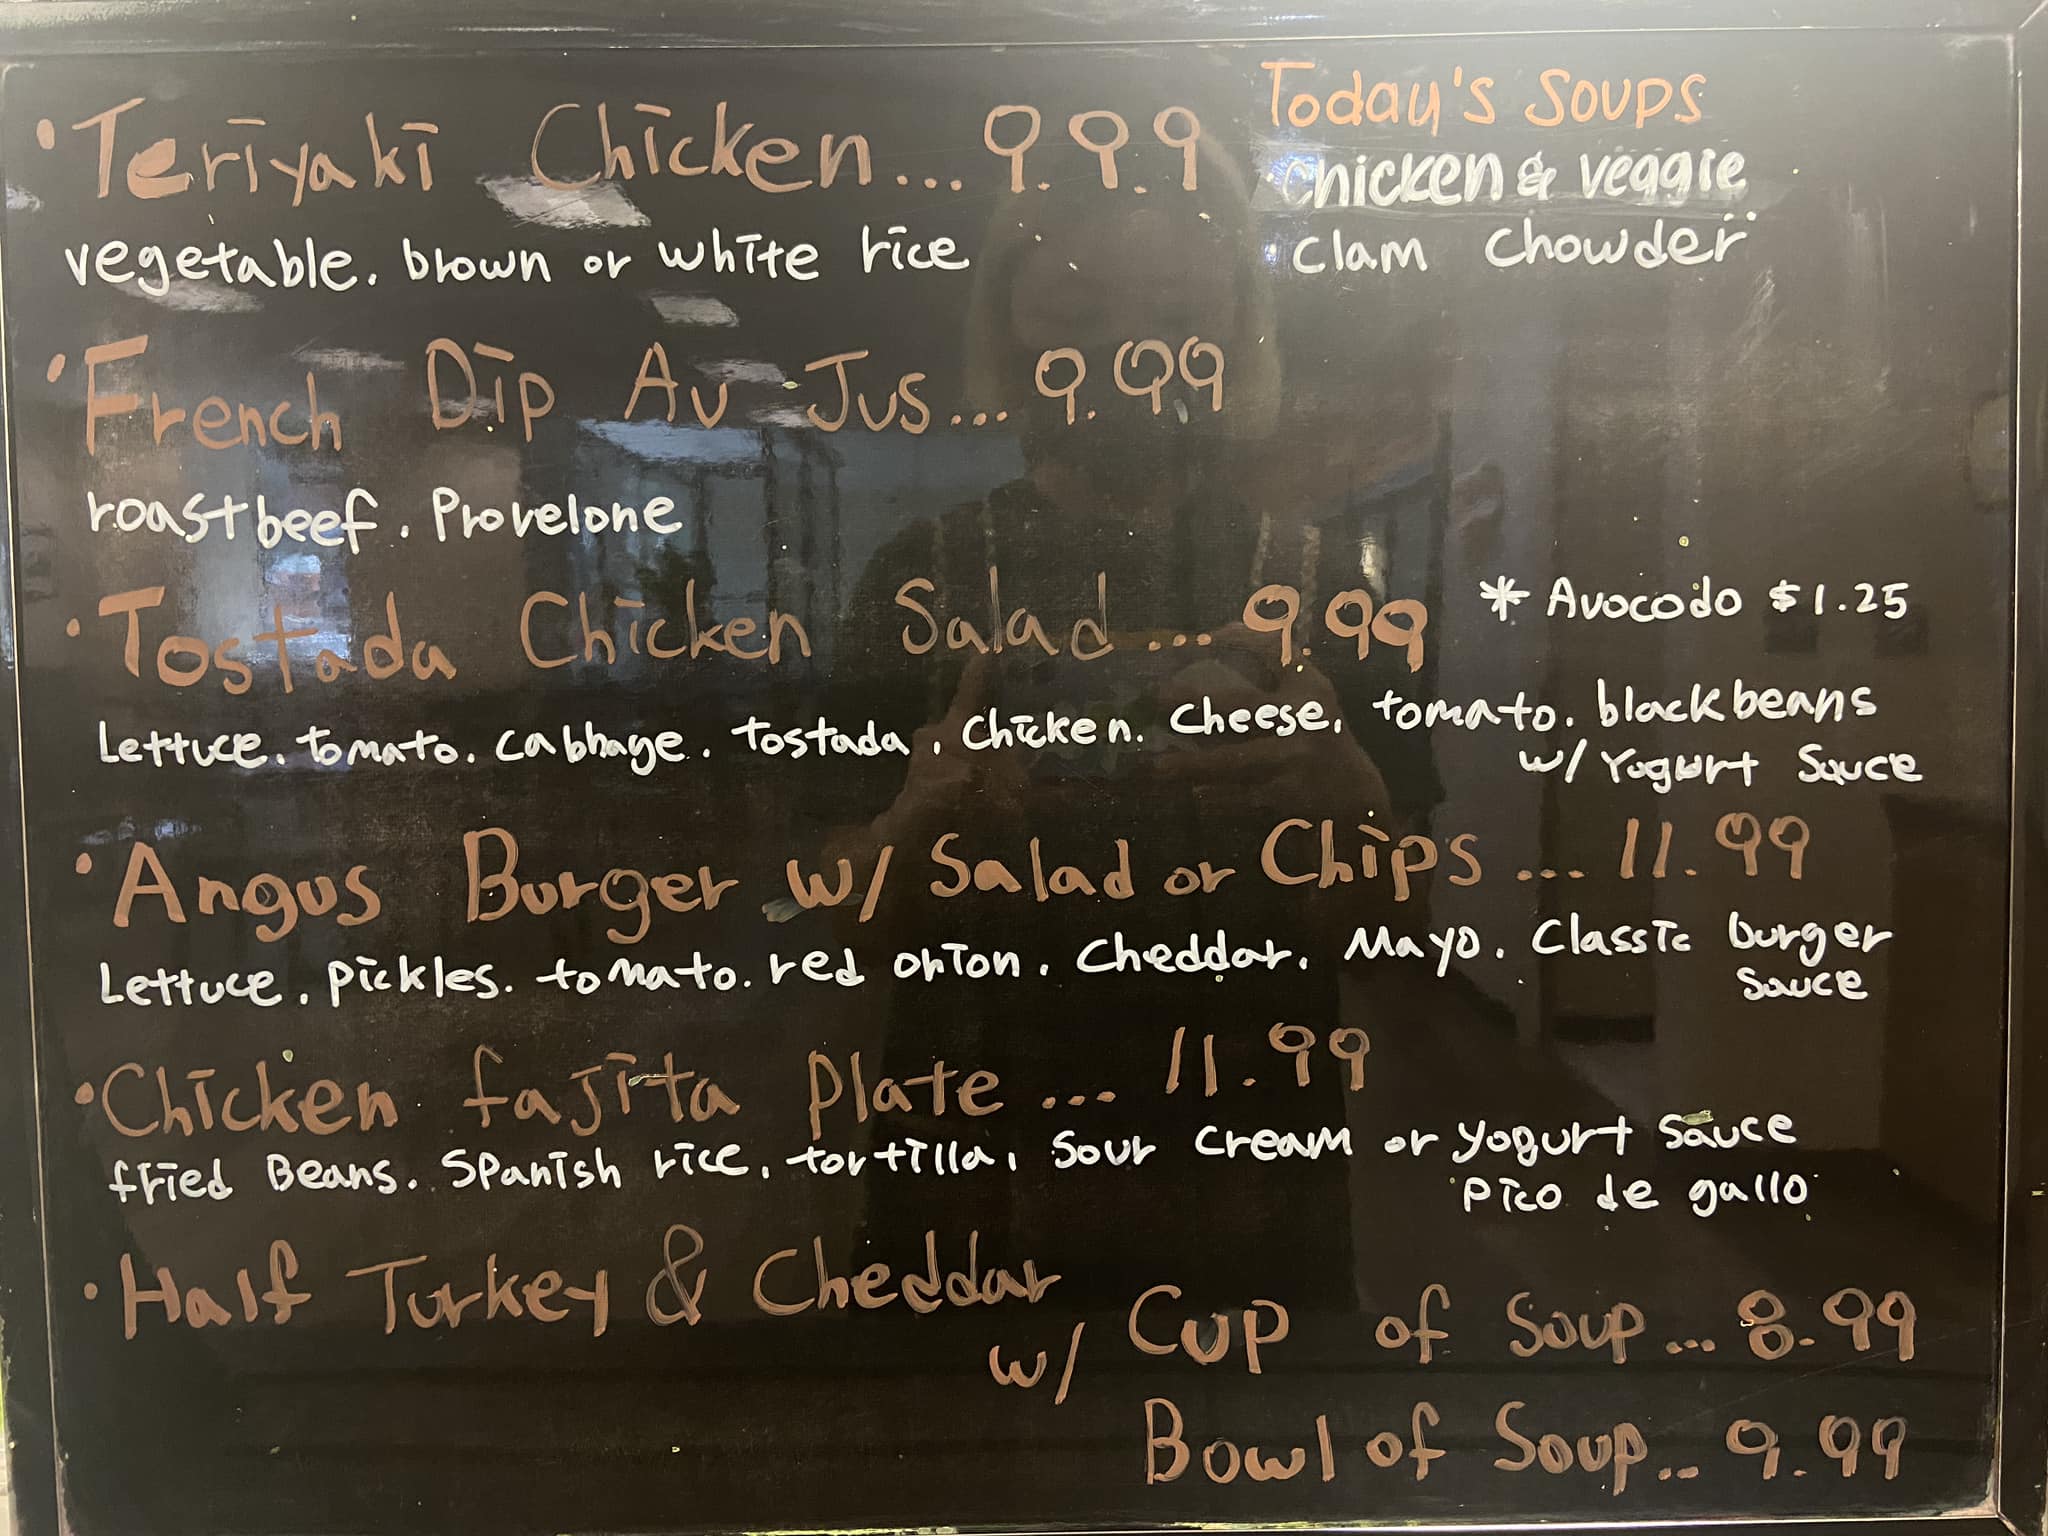 • Teriyaki Chicken... 9.99
vegetable. brown or white rice
Today's Soups
• chicken & veggie
• Clam Chowder
• French Dip Au Jus... 9.99
roastbeef. Provelone
• Tostada Chicken Salad... 9.99
* Avocodo $1.25
Lettuce. tomato. cabbage. tostada, chicken. cheese. tomato. black beans
w/ Yogurt Sauce
• Angus Burger w/ Salad or Chips... 11.99
Lettuce. pickles. tomato. red onion. cheddar. Mayo. Classic burger
sauce
• Chicken fajita Plate... 11.99
fried Beans. Spanish rice. tortilla, sour cream or yogurt sauce
pico de gallo
• Half Turkey & Cheddar
w/ Cup of Soup... 8.99
Bowl of Soup... 9.99